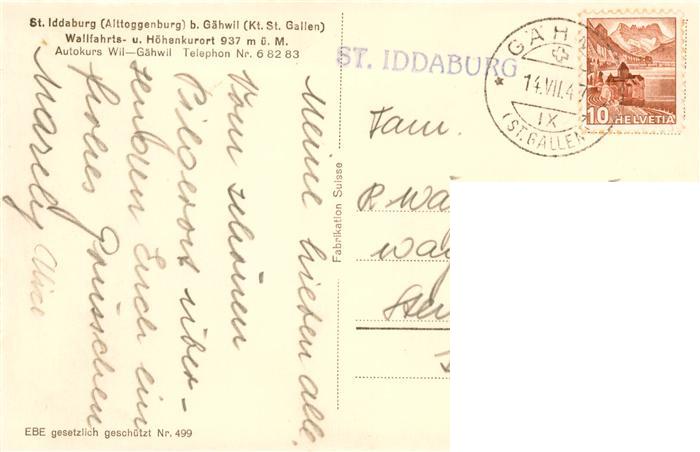 St. Iddaburg (Alttoggenburg) b. Gähwil (Kt. St. Gallen)
Wallfahrts- u. Höhenkurort 937 m ü. M.
Autokurs Wil—Gähwil Telephon Nr. 6 82 83
ST. IDDABURG
GÄH
14.VII.47
IX
(ST. GALLEN
10 HELVETIA
Meine lieben alle,
Vom schönen
Pilgerort über-
senden Euch ein
frohes Grüsschen
Marcely Alice
Fabrikation Suisse
Fam.
R. Wä
Way
EBE gesetzlich geschützt Nr. 499